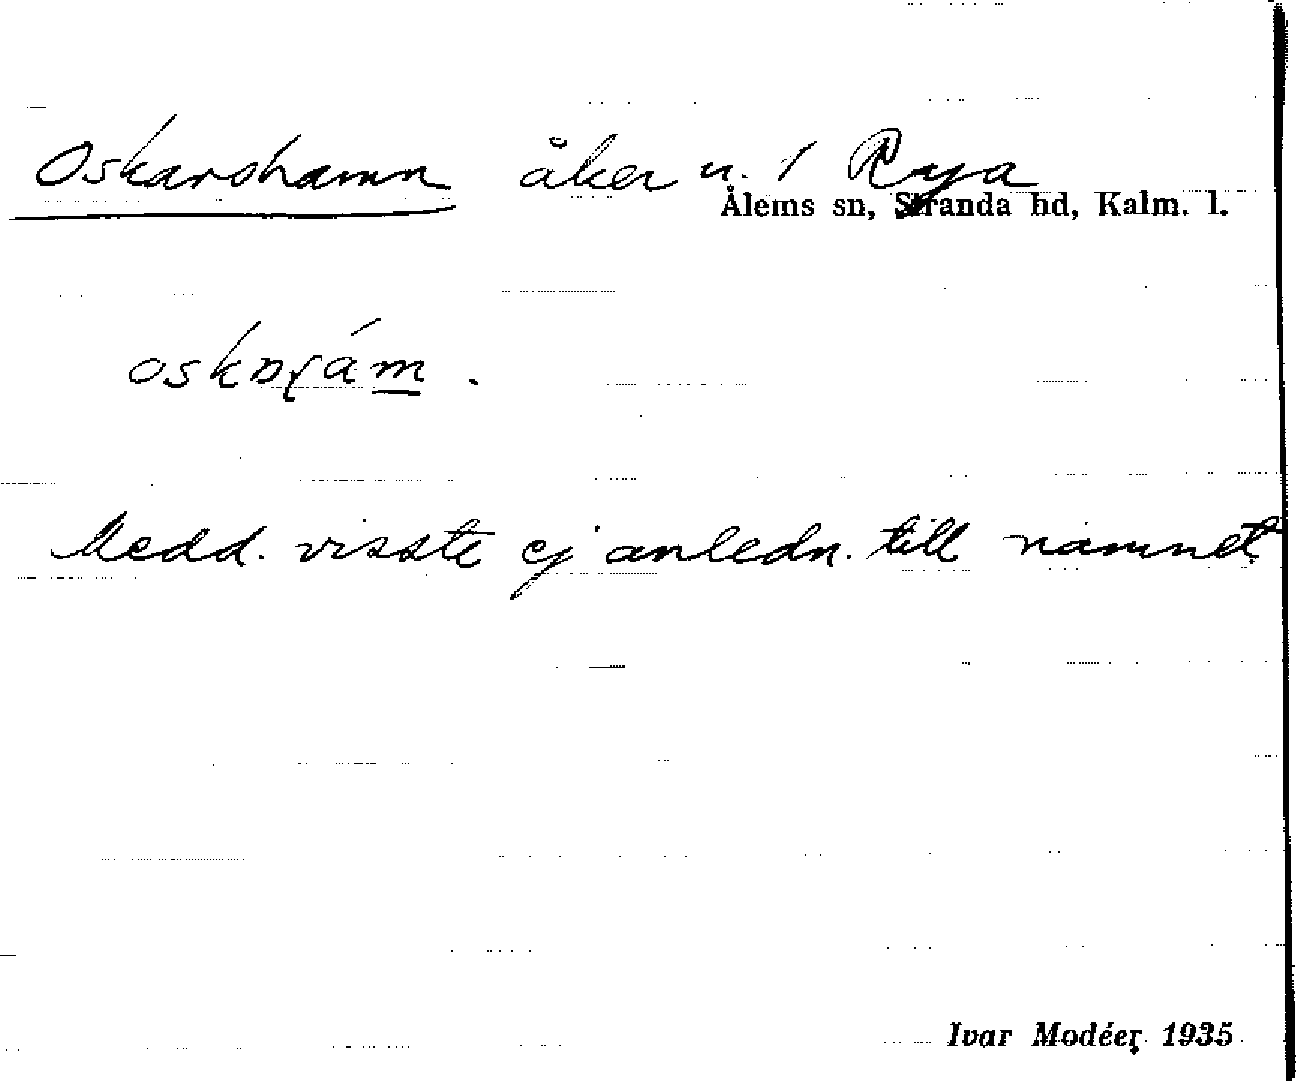 Oskarshamn åker u. 1 Rya
Ålems sn, Stranda hd, Kalm. l.
Medd. visste ej anledn. till namnet.
Ivar Modéer 1935